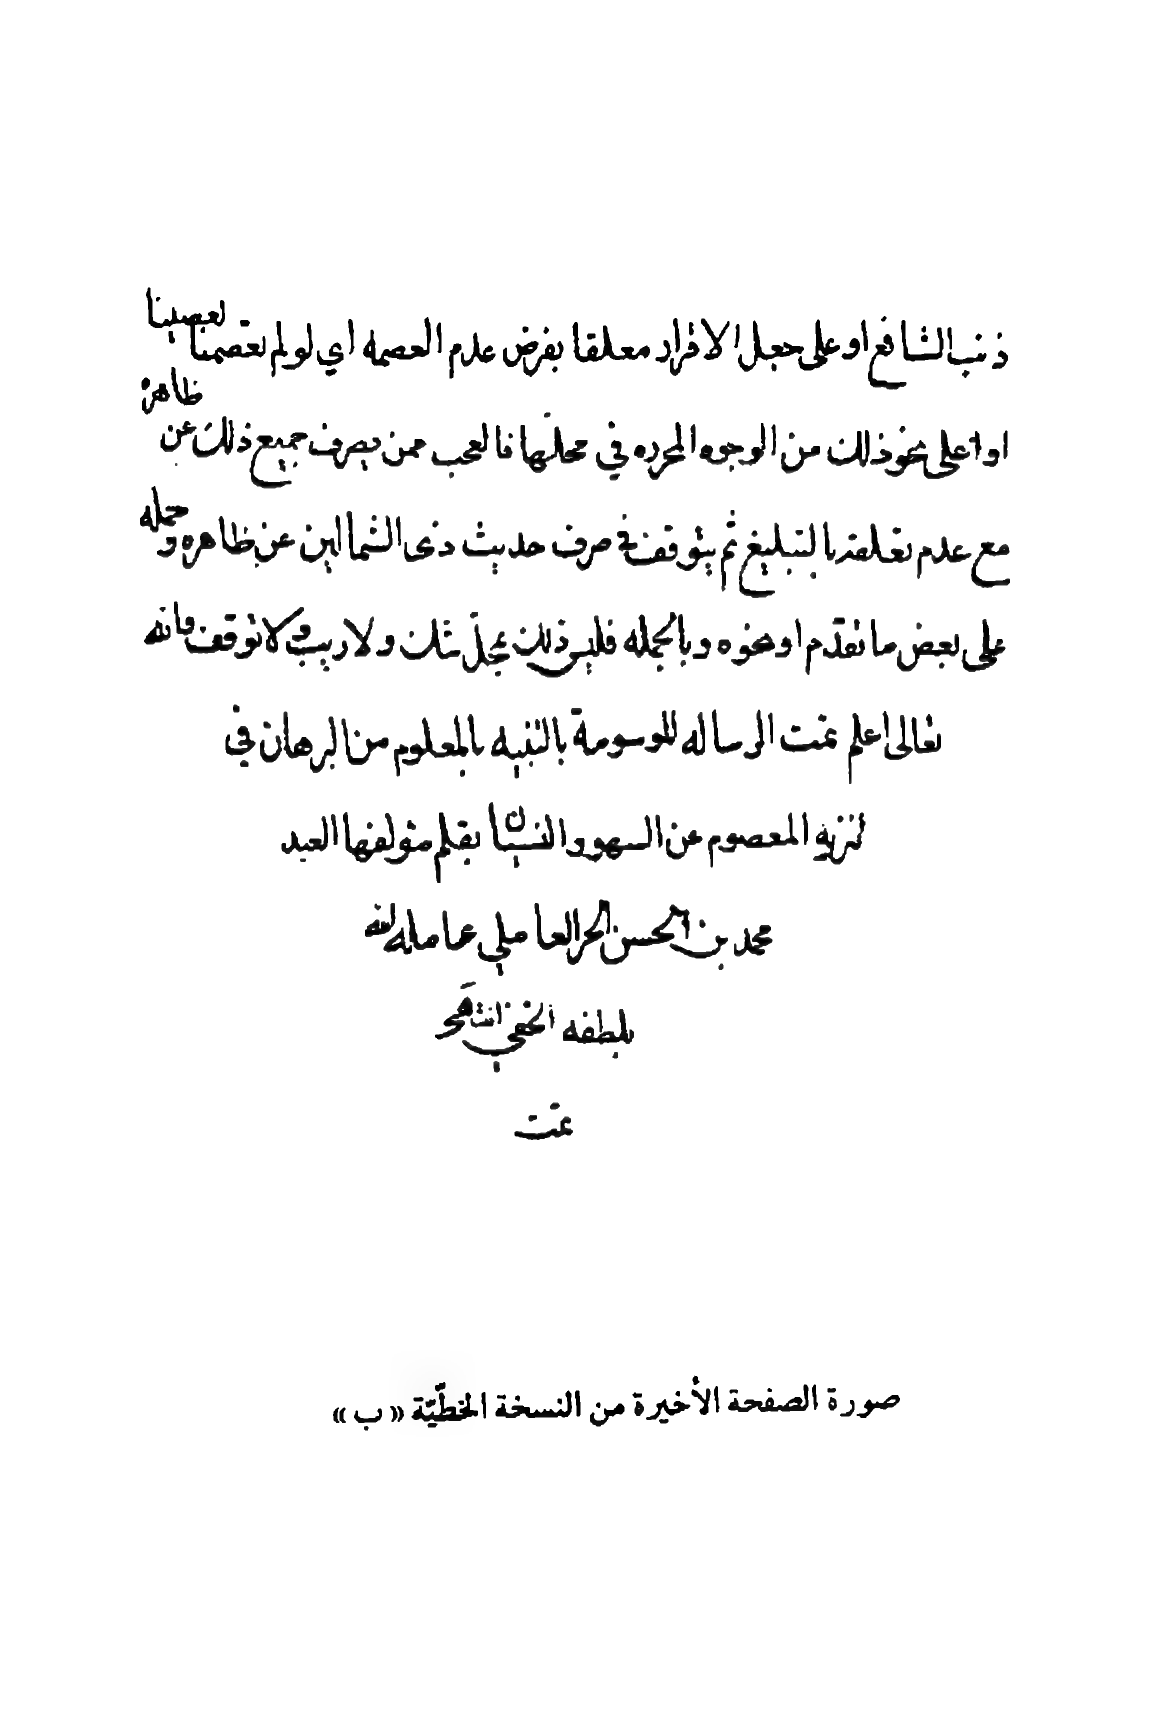 ذنب الشافع او على جعل الاقرار معلقا بفرض عدم العصمه اي لو لم تعصمنا لعصينا
او على نحو ذلك من الوجوه المحرره في محلّها فالعجب ممن يصرف جميع ذلك عن ظاهره
مع عدم تعلقه بالتبليغ ثم يتوقف في صرف حديث ذى الشمالين عن ظاهره وحمله
على بعض ما تقدّم او نحوه وبالجمله فليس ذلك بمحلّ شك ولا ريب ولا توقف والله
تعالى اعلم تمت الرساله الموسومة بالتنبيه بالمعلوم من البرهان في
تنزيه المعصوم عن السهو والنسيان بقلم مؤلفها العبد
محمد بن الحسن الحر العاملي عامله الله
بلطفه الخفي
تمت
صورة الصفحة الأخيرة من النسخة الخطّيّة « ب »